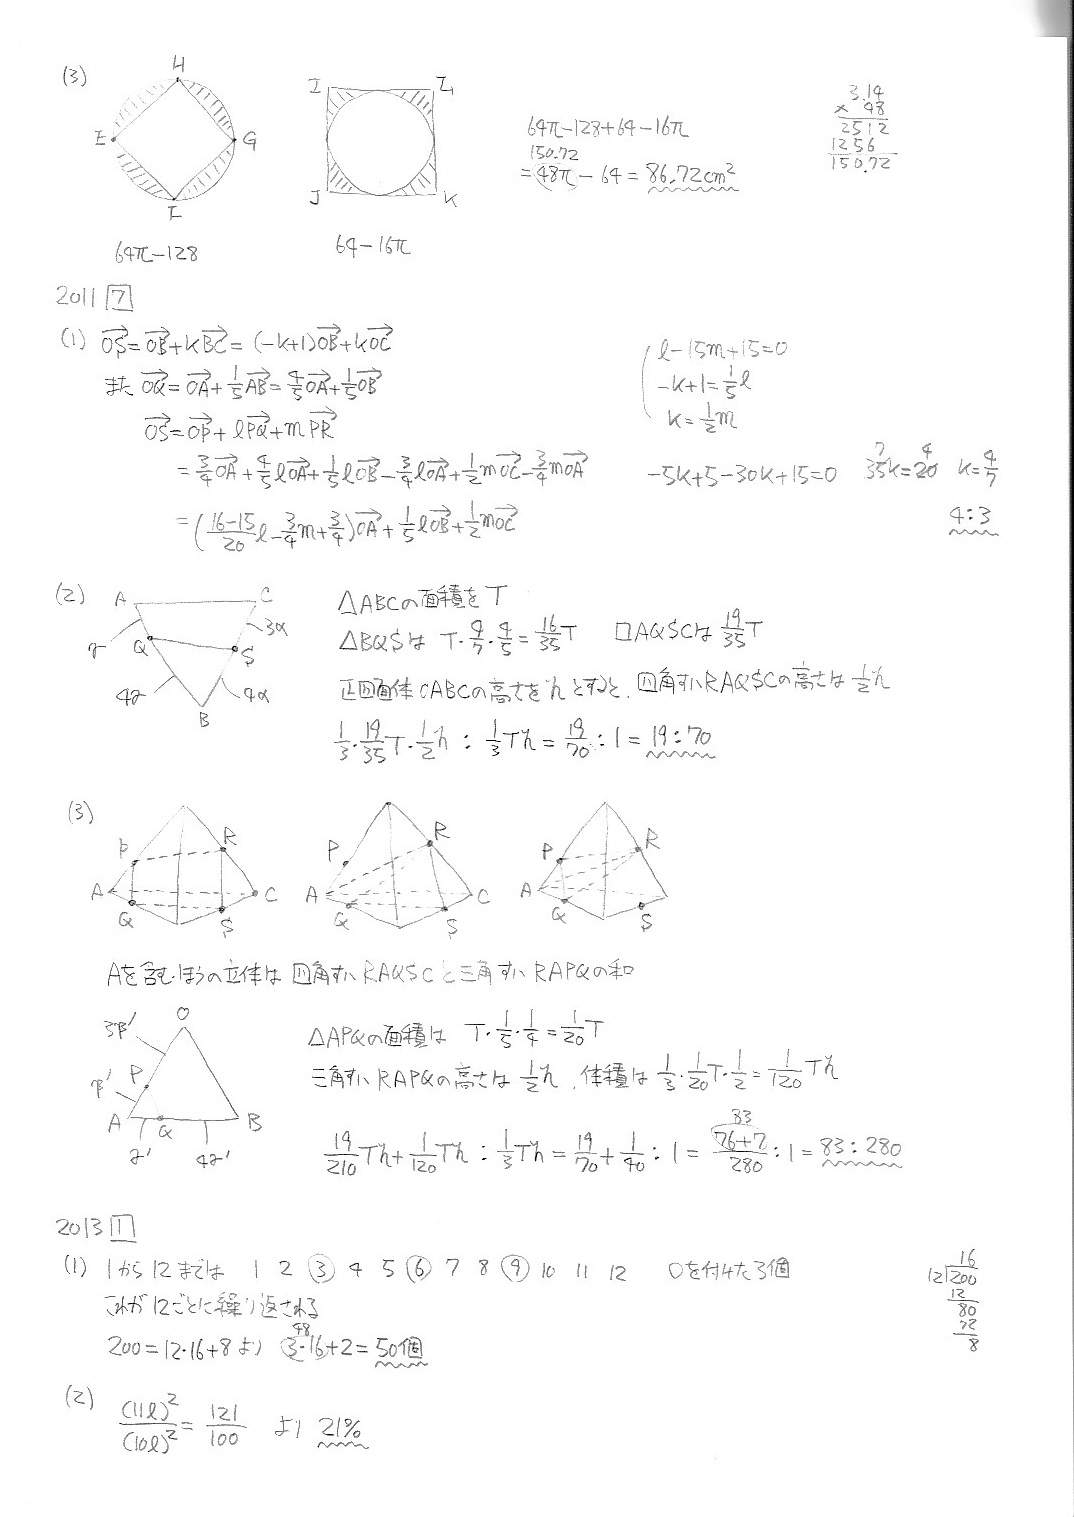 (3)
H
E
G
F
64π-128
I
L
J
K
64-16π
64π-128+64-16π
150.72
=48π-64=86.72cm²
3.14
× 48
2512
1256
150.72
2011 7
(1) OS=OB+kBC=(-k+1)OB+kOC
また OQ=OA+1/5AB=4/5OA+1/5OB
OS=OP+ℓPQ+mPR
=3/4OA+4/5ℓOA+1/5ℓOB-3/4ℓOA+1/2mOC-3/4mOA
=(16-15/20ℓ-3/4m+3/4)OA+1/5ℓOB+1/2mOC
ℓ-15m+15=0
-k+1=1/5ℓ
k=1/2m
-5k+5-30k+15=0 35k=20 k=4/7
7 4
4:3
(2)
A
C
Q
S
B
3α
4α
△ABCの面積をT
△BQSは T・4/7・4/5=16/35T □AQSCは 19/35T
正四面体OABCの高さをhとすると、四角すいRAQSCの高さは1/2h
1/3・19/35T・1/2h : 1/3Th=19/70:1=19:70
(3)
P R A C Q S
P R A C Q S
P R A Q S
Aを含むほうの立体は 四角すいRAQSCと三角すいRAPQの和
O
P
A
Q
B
△APQの面積は T・1/5・1/4=1/20T
三角すいRAPQの高さは1/2h、体積は1/3・1/20T・1/2=1/120Th
83
19/210Th+1/120Th : 1/3Th=19/70+1/40:1=76+7/280:1=83:280
2013 1
(1) 1から12までは 1 2 ③ 4 5 ⑥ 7 8 ⑨ 10 11 12 ○を付けた3個
これが12ごとに繰り返される
48
200=12・16+8より 3・16+2=50個
16
12)200
12
80
72
8
(2) (11ℓ)²/(10ℓ)²=121/100 より 21%